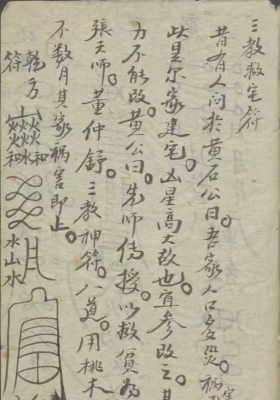 三教救宅符
昔有人问於黄石公曰。吾家人口多災。禍
此是尔家建宅。凶星高大故也。宜参改之。其
力不能改。黄公曰。先师傳授。以救貧為
張天师。董仲舒。三教神符。八道。用桃木
不数月其家祸害即止。
乾方
符
水山水